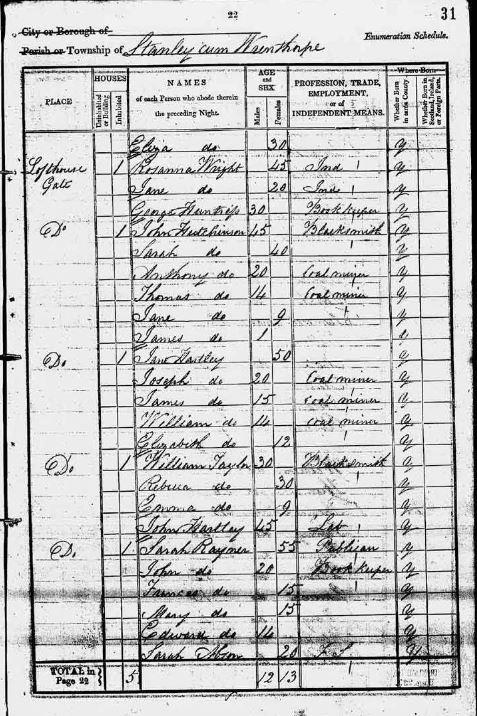 22
31
City or Borough of
Parish or Township of Stanley cum Wrenthorpe
Enumeration Schedule.
PLACE HOUSES NAMES of each Person who abode therein the preceding Night. AGE and SEX PROFESSION, TRADE, EMPLOYMENT, or of INDEPENDENT MEANS. Where Born
Uninhabited or Building Inhabited Males Females Whether Born in same County Whether Born in Scotland, Ireland, or Foreign Parts
Eliza do 30 y
Lofthouse Gate 1 Rosanna Wright 45 Ind y
Jane do 20 Ind y
George 30 Book keeper y
Do 1 John Hutchinson 45 Blacksmith y
Sarah do 40 y
Anthony do 20 Coal miner y
Thomas do 14 Coal miner y
Jane do 9 y
James do 1 y
Do 1 Jane Hartley 50 y
Joseph do 20 Coal miner y
James do 15 Coal miner y
William do 14 Coal miner y
Elizabeth do 12 y
Do 1 William Taylor 30 Blacksmith y
Rebecca do 30 y
Emma do 9 y
John Hartley 45 Lab y
Do 1 Sarah Raynor 55 Publican y
John do 20 Book keeper y
Frances do 15 y
Mary do 15 y
Edward do 14 y
Sarah 20 F S y
TOTAL in Page 22 5 12 13